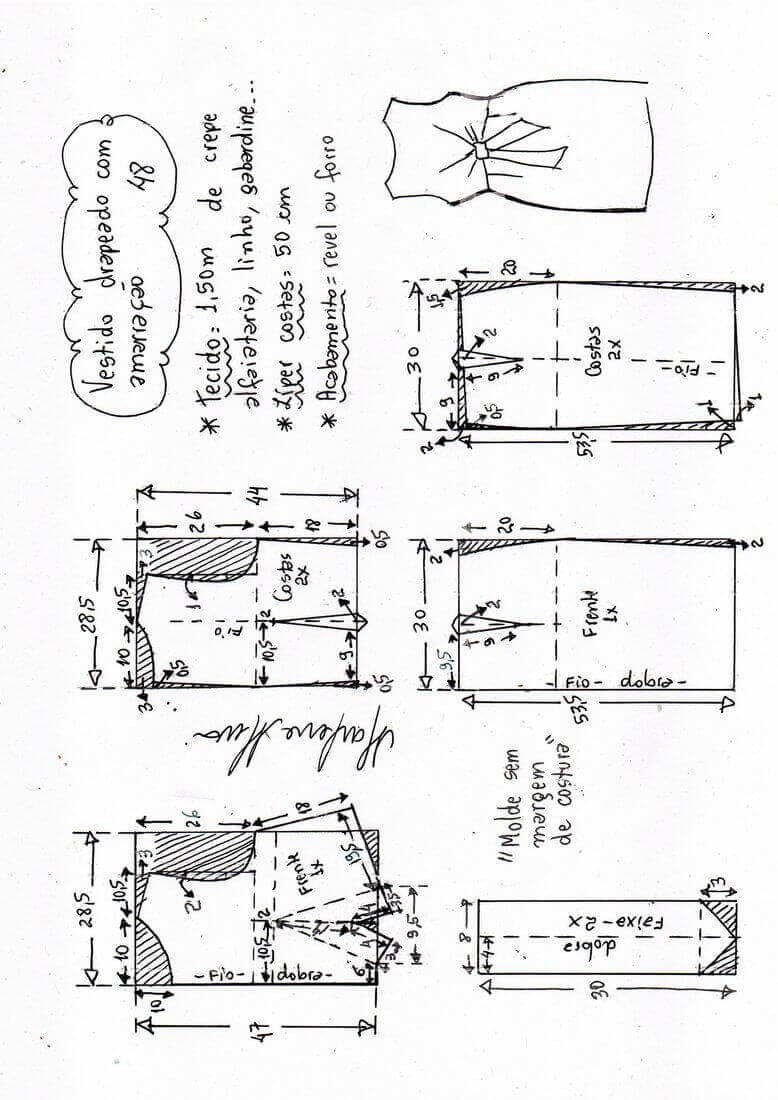 Vestido drapeado com
amarração 48
* Tecido = 1,50m de crepe
alfaiataria, linho, gabardine...
* Zíper costas = 50 cm
* Acabamento = revel ou forro
28,5
10
10,5
3
26
10
2
47
Frente
1x
18
10,5
2
- Fio - dobra -
19,5
4
4
3,5
3
6
9,5
28,5
10
10,5
3
3
26
44
0,5
1
Fio
Costas
2x
18
10,5
2
9
2
0,5
0,5
Marlene Mukai
30
9,5
2
20
9
2
53,5
Frente
1x
- Fio - dobra -
2
30
2
9
1,5
20
0,5
9
2
53,5
Costas
2x
- Fio -
1
1
2
"Molde sem
margem
de costura"
8
4
30
dobra
Faixa - 2x
3